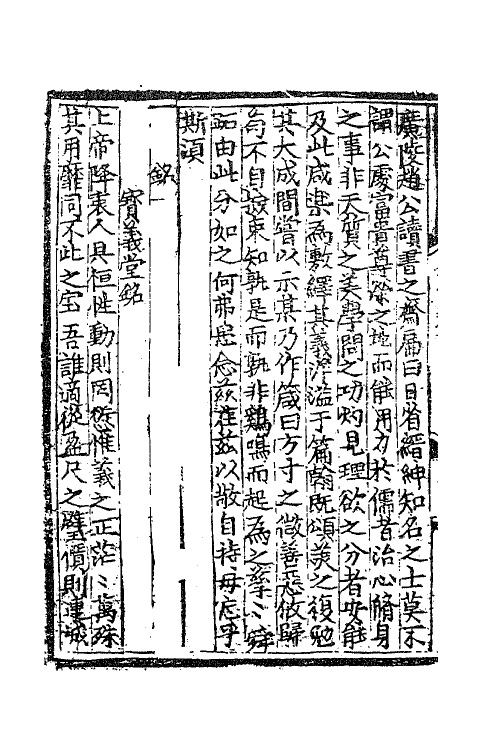 廣陵趙公讀書之齋扁曰日省縉紳知名之士莫不
謂公處富貴尊榮之地而能用力於儒者治心脩身
之事非天質之美學問之功灼見理欲之分者安能
及此咸樂為敷繹其義洋溢于篇翰既頌美之復勉
其大成間嘗以示某乃作箴曰方寸之微善惡攸歸
苟不自撿束知孰是而孰非鷄鳴而起為之孳〻舜
跖由此分如之何弗思念兹在兹以敬自持毋忘乎
斯須
銘
寳義堂銘
上帝降衷人具恒性動則罔愆惟義之正茫〻萬殊
其用靡同不此之宝吾誰適從盈尺之璧價則連城